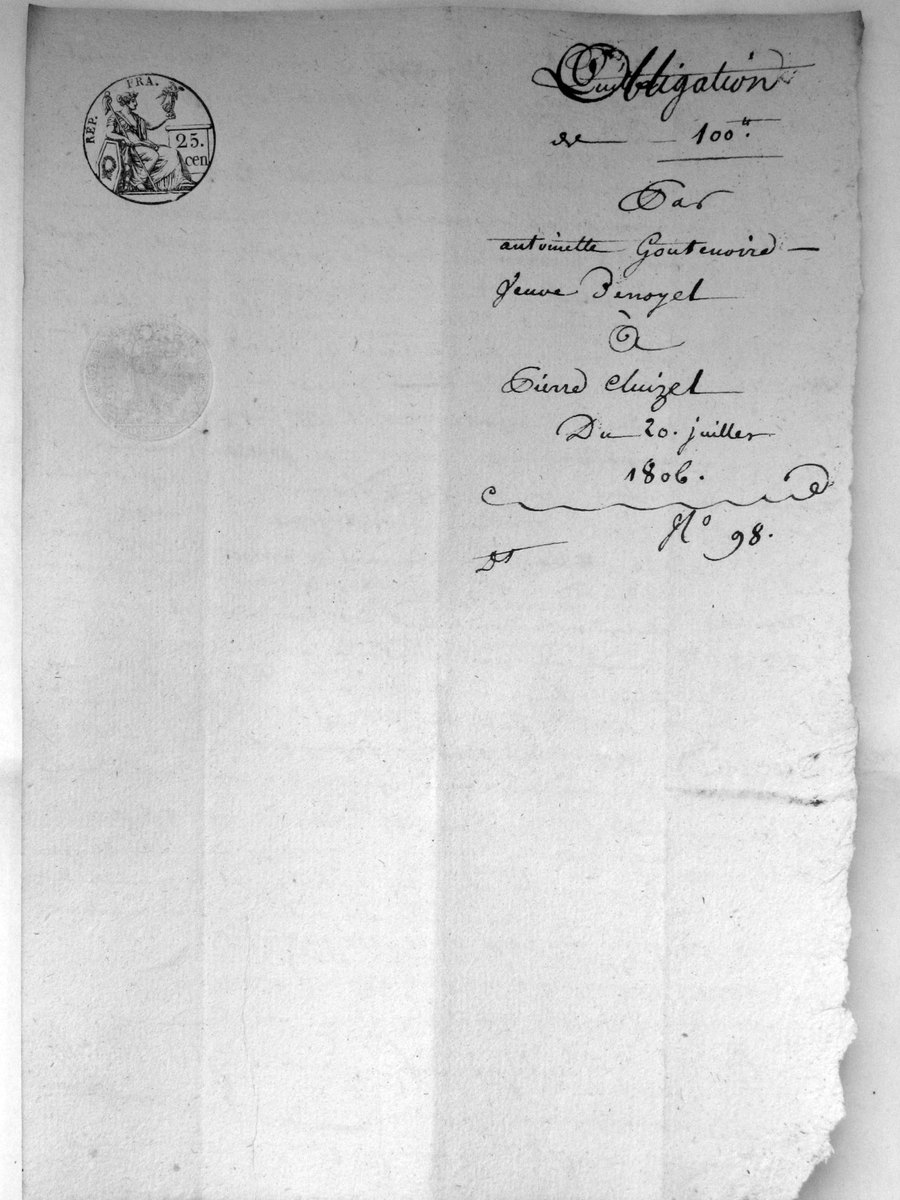 RÉP. FRA.
25.
cen
Obligation
de 100ᵗᵗ.
Par
antoinette Goutenoire
Veuve Penoyel
À
Pierre Cluizel
Du 20. juillet
1806.
N° 98.